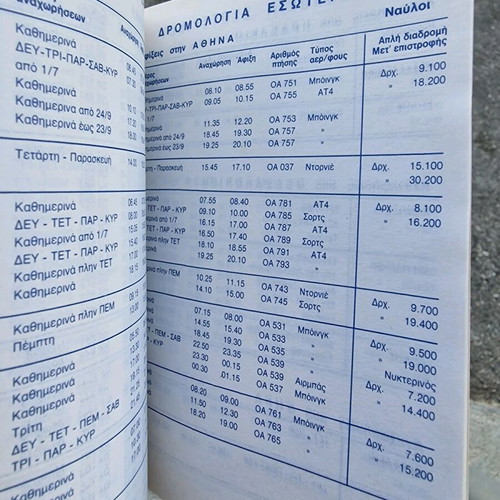 αναχωρήσεων
Καθημερινά
ΔΕΥ-ΤΡΙ-ΠΑΡ-ΣΑΒ-ΚΥΡ
από 1/7
Καθημερινά
Καθημερινα από 24/9
Καθημερινά έως 23/9
Τετάρτη - Παρασκευή 14.00
Καθημερινά
ΔΕΥ - ΤΕΤ - ΠΑΡ - ΚΥΡ
Καθημερινά από 1/7
ΔΕΥ - ΤΕΤ - ΠΑΡ - ΚΥΡ
Καθημερινά πλην ΤΕΤ
Καθημερινά
Καθημερινά πλην ΠΕΜ
Πέμπτη
Καθημερινά
Καθημερινά
Καθημερινά
Τρίτη
ΔΕΥ - ΤΕΤ - ΠΕΜ - ΣΑΒ
ΤΡΙ - ΠΑΡ - ΚΥΡ
ΔΡΟΜΟΛΟΓΙΑ ΕΣΩΤΕ
στην ΑΘΗΝΑ Ναύλοι
Αναχώρηση Άφιξη Αριθμός πτήσης Τύπος αερ/φους Απλή διαδρομή Μετ' επιστροφής
08.10 08.55 ΟΑ 751 Μπόινγκ Δρχ. 9.100
09.05 10.15 ΟΑ 755 ΑΤ4 18.200
11.35 12.20 ΟΑ 753 Μπόινγκ
από 24/9 18.45 19.30 ΟΑ 757 "
έως 23/9 19.25 20.10 ΟΑ 757 "
- Παρασκευή 15.45 17.10 ΟΑ 037 Ντορνιέ Δρχ. 15.100
30.200
07.55 08.40 ΟΑ 781 ΑΤ4 Δρχ. 8.100
ΤΕΤ - ΠΑΡ - ΚΥΡ 09.10 10.00 ΟΑ 785 Σορτς 16.200
από 1/7 16.15 17.00 ΟΑ 787 ΑΤ4
ΤΕΤ - ΠΑΡ - ΚΥΡ 16.40 17.30 ΟΑ 789 Σορτς
πλην ΤΕΤ 18.10 18.55 ΟΑ 791 ΑΤ4
19.25 20.10 ΟΑ 793 "
πλην ΠΕΜ 10.25 11.15 ΟΑ 743 Ντορνιέ Δρχ. 9.700
14.10 15.00 ΟΑ 745 Σορτς 19.400
07.15 08.00 ΟΑ 531 Μπόινγκ Δρχ. 9.500
14.55 15.40 ΟΑ 533 " 19.000
18.45 19.30 ΟΑ 535 " Νυκτερινός
ΠΕΜ - ΣΑΒ 22.50 23.35 ΟΑ 539 " 7.200
ΚΥΡ 23.30 00.15 ΟΑ 539 Αιρμπάς 14.400
00.30 01.15 ΟΑ 537 Μπόινγκ
08.20 09.00 ΟΑ 761 Μπόινγκ Δρχ. 7.600
11.50 12.30 ΟΑ 763 " 15.200
18.20 19.00 ΟΑ 765 "